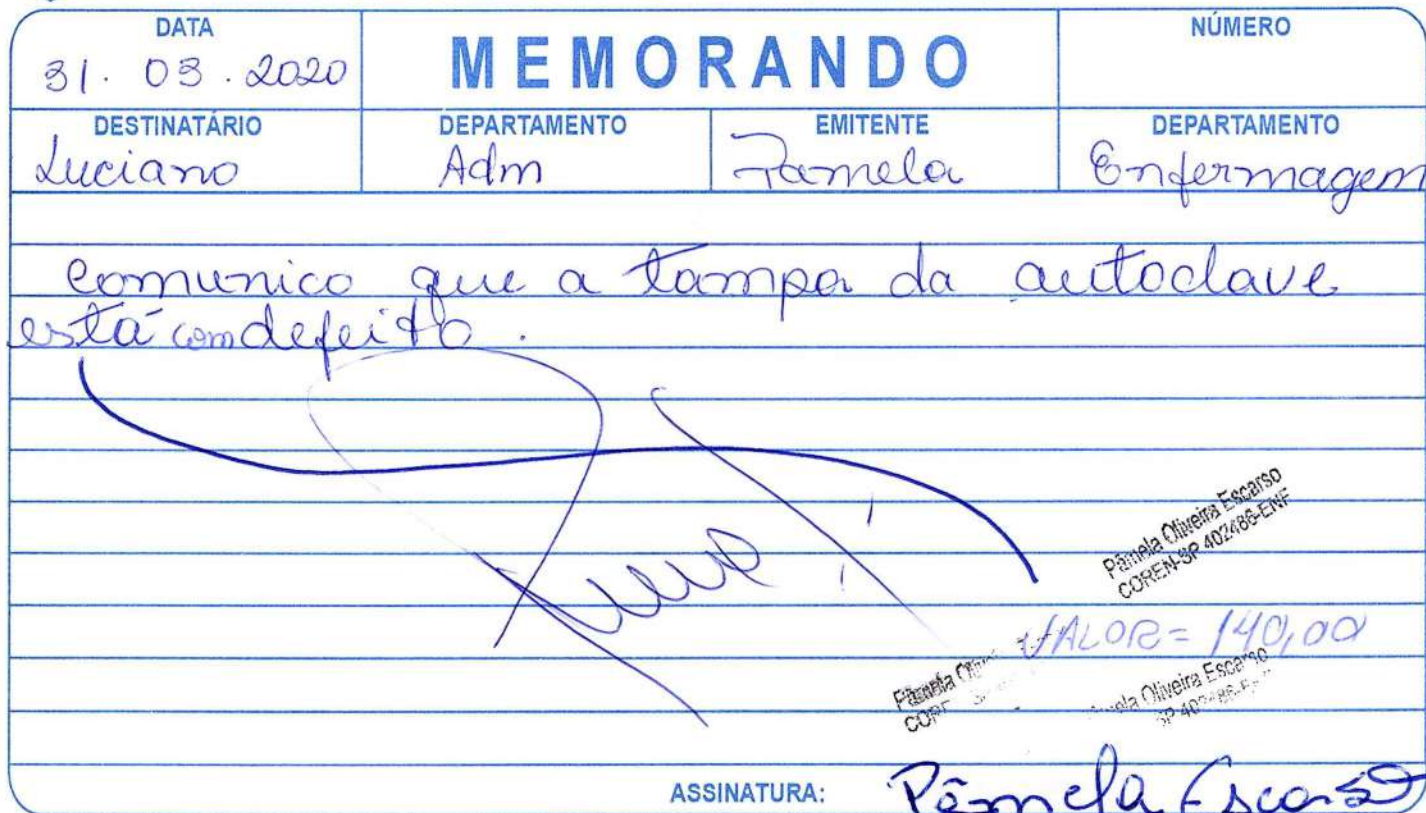 DATA
31. 03. 2020
MEMORANDO
NÚMERO
DESTINATÁRIO
Luciano
DEPARTAMENTO
Adm
EMITENTE
Pamela
DEPARTAMENTO
Enfermagem
comunico que a tampa da autoclave
está com defeito.
Pâmela Oliveira Escarso
COREN-SP 402486-ENF
VALOR = 140,00
Pâmela
Oliveira Escarso
ASSINATURA: Pâmela Escarso